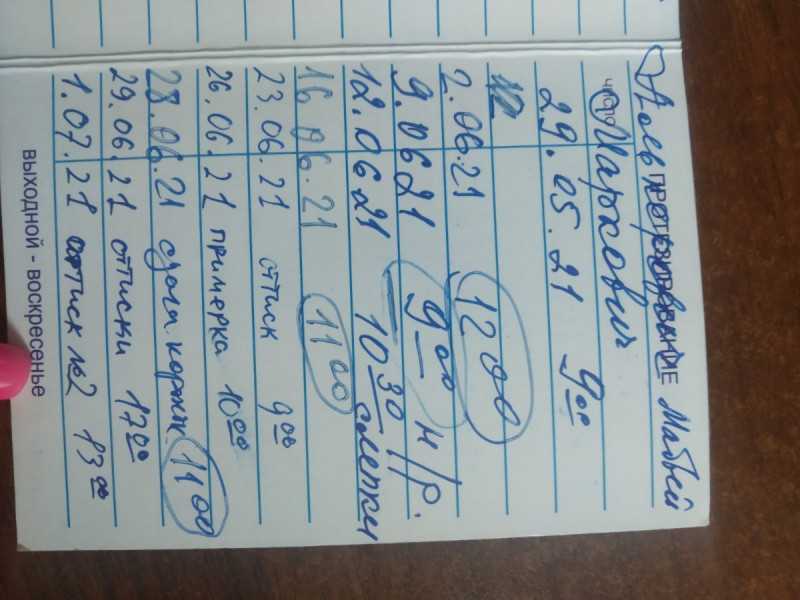 ПРОТЕЗИРОВАНИЕ Матвей
число Маркович
29.05.21 9 00
2.06.21 12 00
9.06 21 9 00 н/р.
12.06 21 10 30 слепки
16.06.21 11 00
23.06.21 оттиск 9 00
26.06.21 примерка 10 00
28.06.21 сдача 11 00
29.06.21 оттиски 17 00
1.07.21 оттиск №2 13 00
выходной - воскресенье